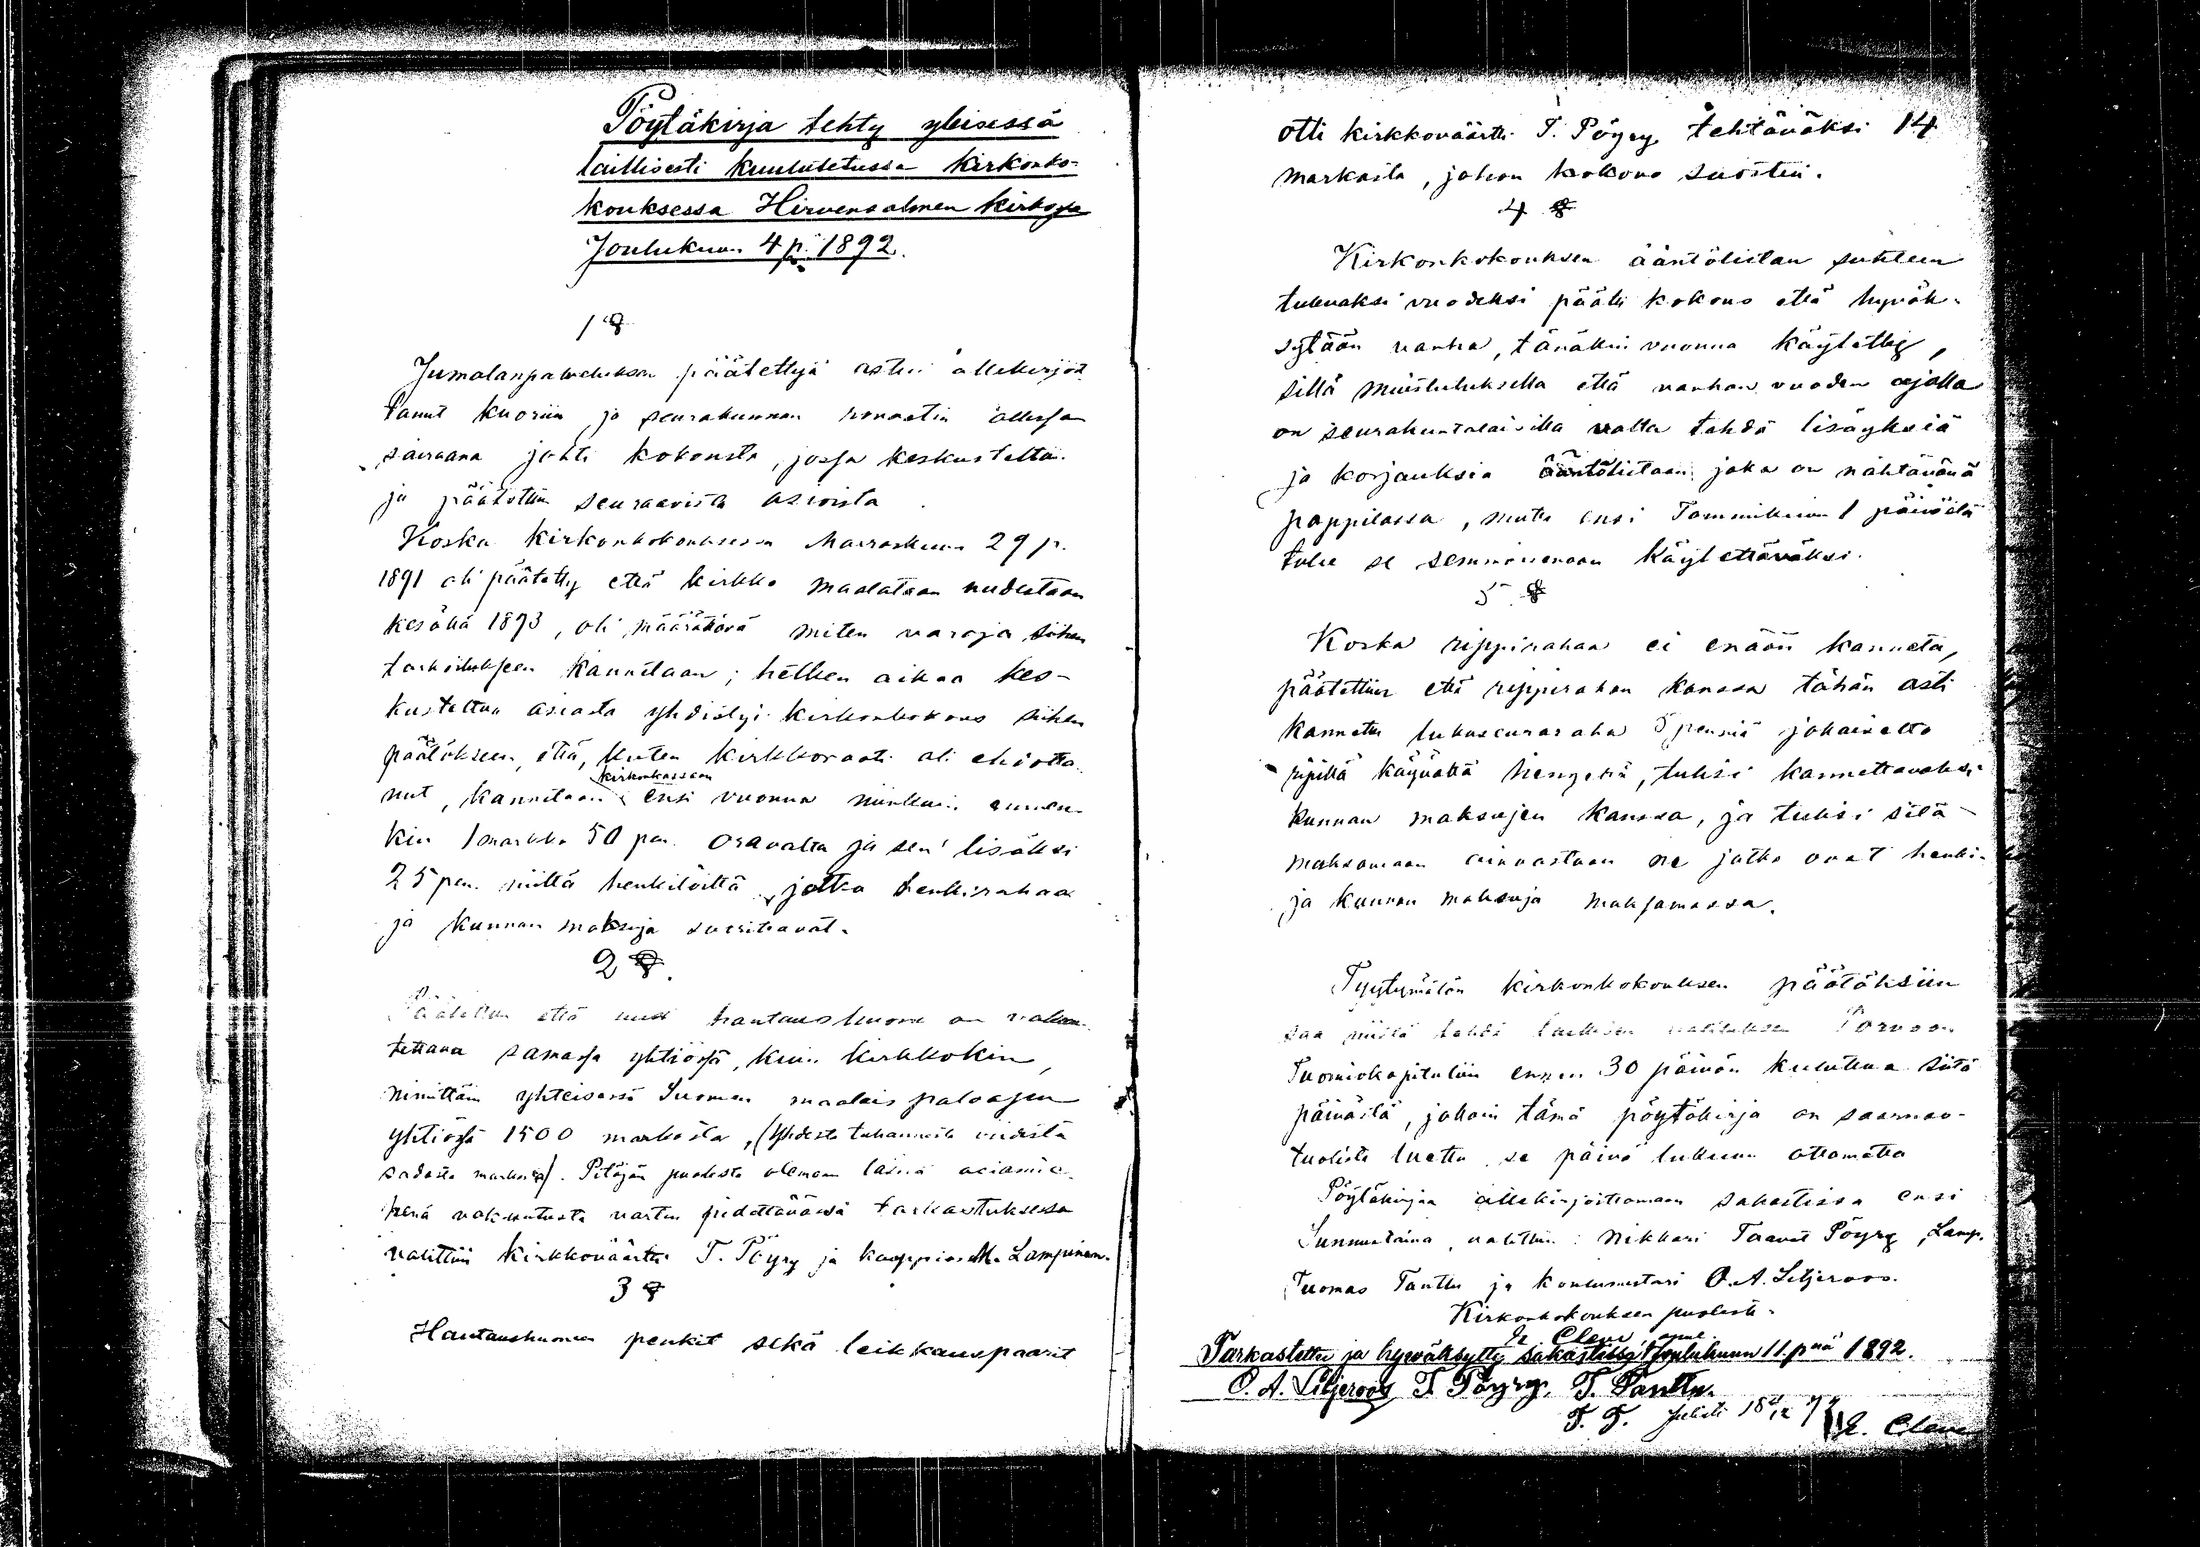 Pöytäkirja tehty yleisessä
laillisesti kuulutetussa kirkonko-
kouksessa Hirvensalmen kirkossa
Joulukuun 4 p. 1892.
1 §
Jumalanpalveluksen päätettyä astui allekirjoit
tanut kuoriin ja seurakunnan rovastin ollessa
sairaana johti kokousta, jossa keskusteltiin
ja päätettiin seuraavista asioista
Koska kirkonkokouksessa Marraskuun 29 p.
1891 oli päätetty että kirkko maalataan uudestaan
kesällä 1893, oli määrättävä miten varoja siihen
tarkoitukseen kannetaan; hetken aikaa kes-
kusteltua asiasta yhdistyi kirkonkokous siihen
päätökseen, että, kuten kirkkoraati oli ehdotta
nut, kannetaan kirkonkassaan ensi vuonna niinkuin ennen-
kin 1 markka 50 pen. osavalta ja sen lisäksi
25 pen. niiltä henkilöiltä jotka henkirahaa
ja kunnan maksuja suorittavat.
2 §.
Päätettiin että uusi hautaushuone on vakuu-
tettava samassa yhtiössä, kuin kirkkokin,
nimittäin yhteisessä Suomen maalais paloapu
yhtiössä 1500 markasta, (yhdestä tuhannesta viidestä
sadasta markasta). Pitäjän puolesta olemaan läsnä asiamie-
henä vakuutusta varten pidettävässä tarkastuksessa
valittiin kirkkoväärti T. Pöyry ja kauppias M. Lampinen.
3 §
Hautaushuoneen penkit sekä leikkauspaarit
otti kirkkoväärti T. Pöyry tehtäväksi 14
markasta, johon kokous suostui.
4 §
Kirkonkokouksen ääntölistan suhteen
tulevaksi vuodeksi päätti kokous että hyväk-
sytään vanha, tänäkin vuonna käytetty,
sillä muistutuksella että vanhan vuoden ajalla
on seurakuntalaisilla valta tehdä lisäyksiä
ja korjauksia ääntölistaan, joka on nähtävänä
pappilassa, mutta ensi Tammikuun 1 päivästä
tulee se semmoisenaan käytettäväksi.
5 §
Koska rippirahaa ei enään kanneta,
päätettiin että rippirahan kanssa tähän asti
kannettu lukuseuraraha 5 penniä jokaiselta
ripillä käyvältä hengeltä, tulisi kannettavaksi
kunnan maksujen kanssa, ja tulisi sitä
maksamaan ainoastaan ne jotka ovat henki-
ja kunnan maksuja maksamassa.
Tyytymätön kirkonkokouksen päätöksiin
saa niistä tehdä laillisen valituksen Porvoon
Tuomiokapituliin ennen 30 päivän kuluttua siitä
päivästä, jolloin tämä pöytäkirja on saarnas-
tuolista luettu, se päivä lukuun ottamatta
Pöytäkirjaa allekirjoittamaan sakastissa ensi
Sunnuntaina, valittiin: Nikkari Taavet Pöyry, Lamp.
Tuomas Tanttu ja koulumestari O. A. Liljeroos.
Kirkonkokouksen puolesta.
E. Cleve
Tarkastettu ja hyväksytty sakastissa Joulukuun 11. p:nä 1892.
O. A. Liljeroos T. Pöyry. T. Tanttu.
Julisti 18 11/12 92
E. Cleve